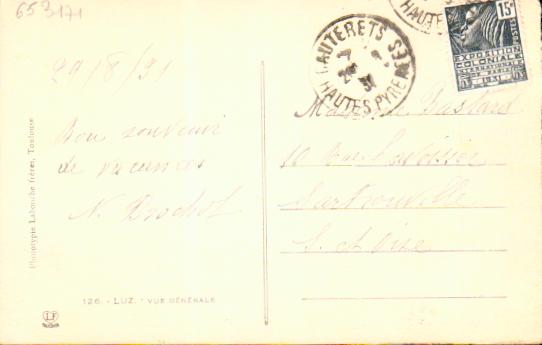 653171
29/8/31
Bon souvenir
de vacances
N. Drochot
Phototypie Labouche frères, Toulouse
126. - LUZ. - VUE GÉNÉRALE
LF
CAUTERETS
HAUTES PYRÉNÉES
15c
POSTES
EXPOSITION
COLONIALE
INTERNATIONALE
Bastard
10 Rue Lavoisier
Sartrouville
S. et Oise